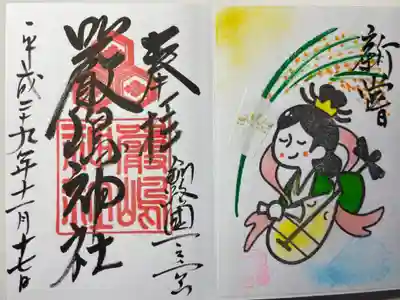 新嘗
奉拝
釧路國一之宮
嚴島神社
平成二十九年十一月十七日